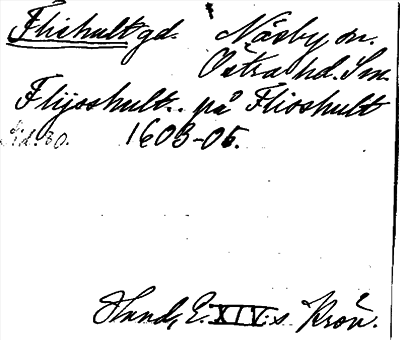 Flishult gd. Näsby sn.
Östra hd. Sm.
Flijsshult.. på Flisshult
s.d. 30. 1603-05.
Hand, E. XIV:s Krön.